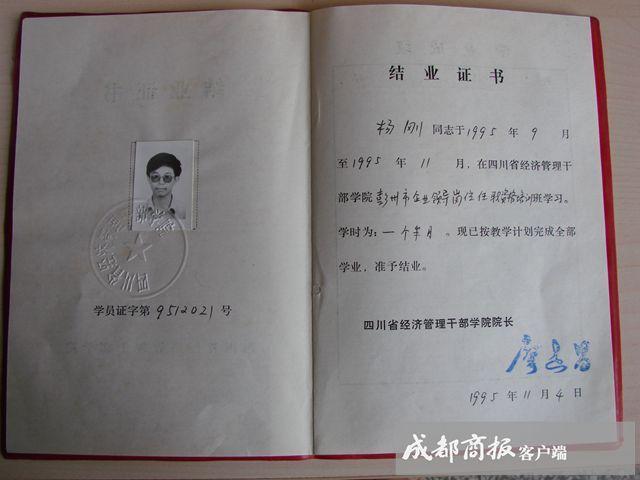 学员证字第 9512021 号
结业证书
杨刚 同志于 1995 年 9 月
至 1995 年 11 月，在四川省经济管理干
部学院 彭州市企业领导岗位任职资格培训 班学习。
学时为：一个半月。现已按教学计划完成全部
学业，准予结业。
四川省经济管理干部学院院长
1995 年 11 月 4 日
成都商报客户端